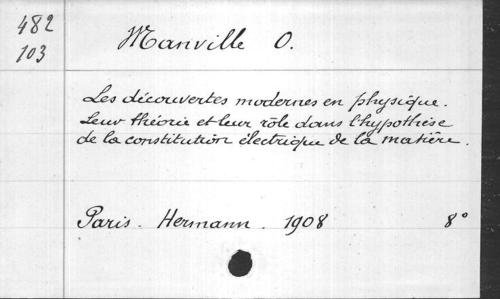 482
103
Manville O.
Les découvertes modernes en physique.
Leur théorie et leur rôle dans l'hypothèse
de la constitution électrique de la matière.
Paris. Hermann. 1908 8°